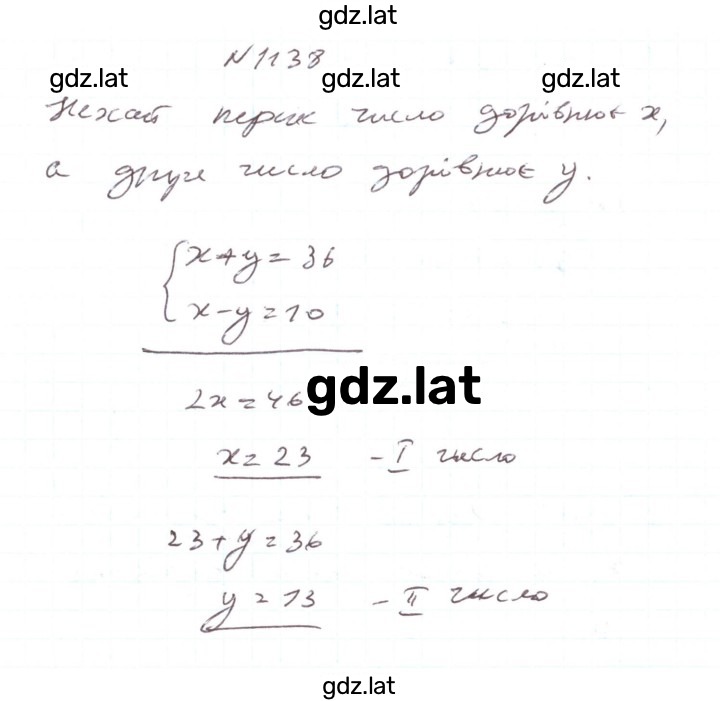 gdz.lat
N 1138
gdz.lat gdz.lat gdz.lat
Нехай перше число дорівнює x,
а друге число дорівнює y.
x+y=36
x-y=10
2x=46 gdz.lat
x=23 - I число
23+y=36
y=13 - II число
gdz.lat